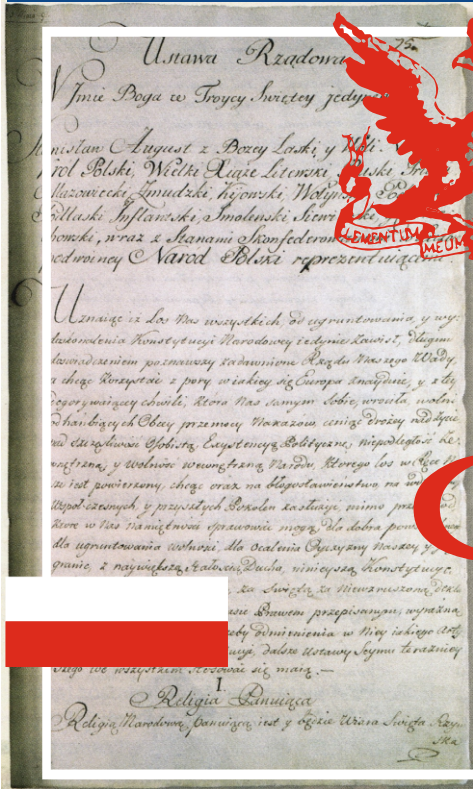 Ustawa Rządowa
75
W Jmie Boga w Troycy Swiętey jedyn
Stanisław August z Bozey Łaski, y Woli
Krol Polski, Wielki Xiąze Litewski, Ruski, Pru
Mazowiecki, Zmudzki, Kijowski, Wołyns
Podlaski, Jnflantski, Smolenski, Siewi
chowski, wraz z Stanami Skonfederow
podwoiney Narod Polski reprezentuiącemi
ELEMENTUM MEUM
Uznaiąc iż Los Nas wszystkich, od ugruntowania, y wy
doskonalenia Konstytucyi Narodowey iedynie zawisł, długim
doswiadczeniem poznawszy zadawnione Rządu Naszego Wady,
a chcąc korzystać z pory w iakiey się Europa znayduie, y z tey
dogorywaiącey chwili, ktora Nas samym Sobie, wrociła, wolni
od hanbiących Obcey przemocy Nakazow, ceniąc drożey nad życie
nad szczęsliwość Osobistą, Exystencyą Polityczną, niepodległość Ze
wnętrzną, y Wolność wewnętrzną Narodu, Ktorego los w Ręce N
sze iest powierzony, chcąc oraz na błogosławieństwo, na w
Wspołczesnych, y przyszłych Pokoleń zasłużyć, mimo prze
ktore w Nas namiętności sprawować mogą, dla dobra pow
dla ugruntowania wolności, dla ocalenia Oyczyzny Naszey y
granic, z naywiększą stałością Ducha, ninieyszą Konstytucyę
za Swiętą za Niewzruszoną dekl
Prawem przepisanym, wyraźną
odmienienia w Niey iakiego Arty
dalsze Ustawy Seymu teraźniey
szego we wszystkim stosować się maią.—
I.
Religia Panuiąca
Religią Narodową panuiącą iest y będzie Wiara Swięta Rzym
ska